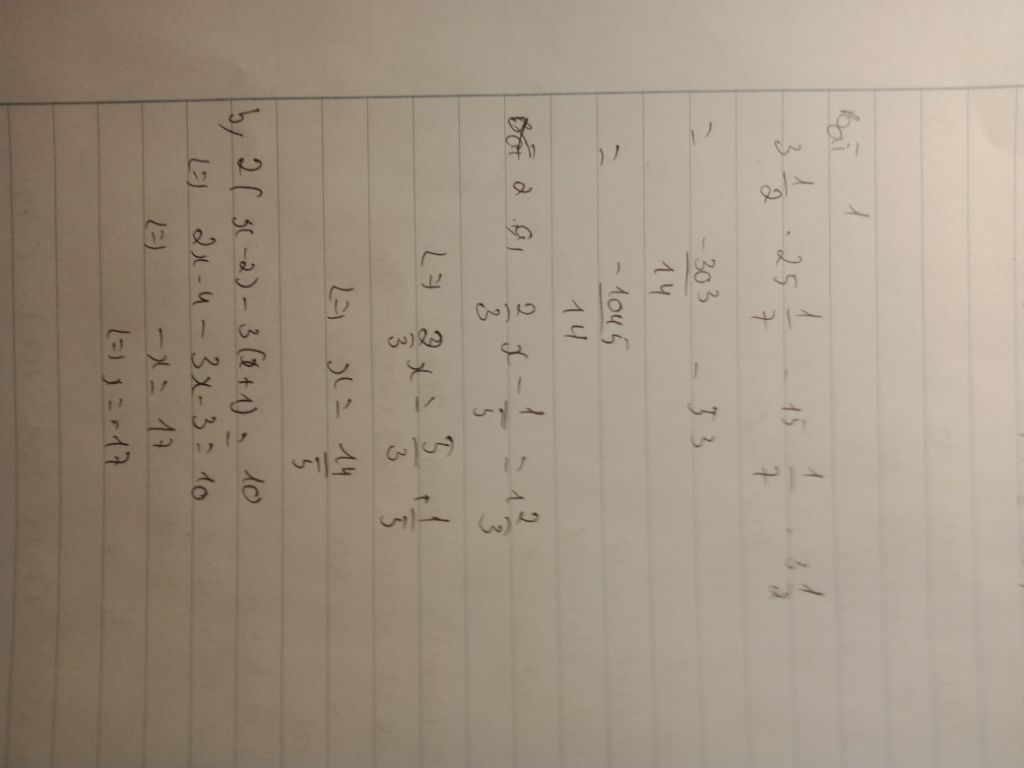 Bài 1
3 1/2 . 25 1/7 - 15 1/7 . 3 1/2
= -303/14 - 53
= -1045/14
Bài 2 a, 2/3 x - 1/5 = 1 2/3
(=) 2/3 x = 5/3 + 1/5
(=) x = 14/5
b, 2(x-2) - 3(x+1) = 10
(=) 2x - 4 - 3x - 3 = 10
(=) -x = 17
(=) x = -17